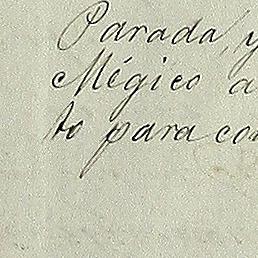 Parada, y
Mégico a
to para con